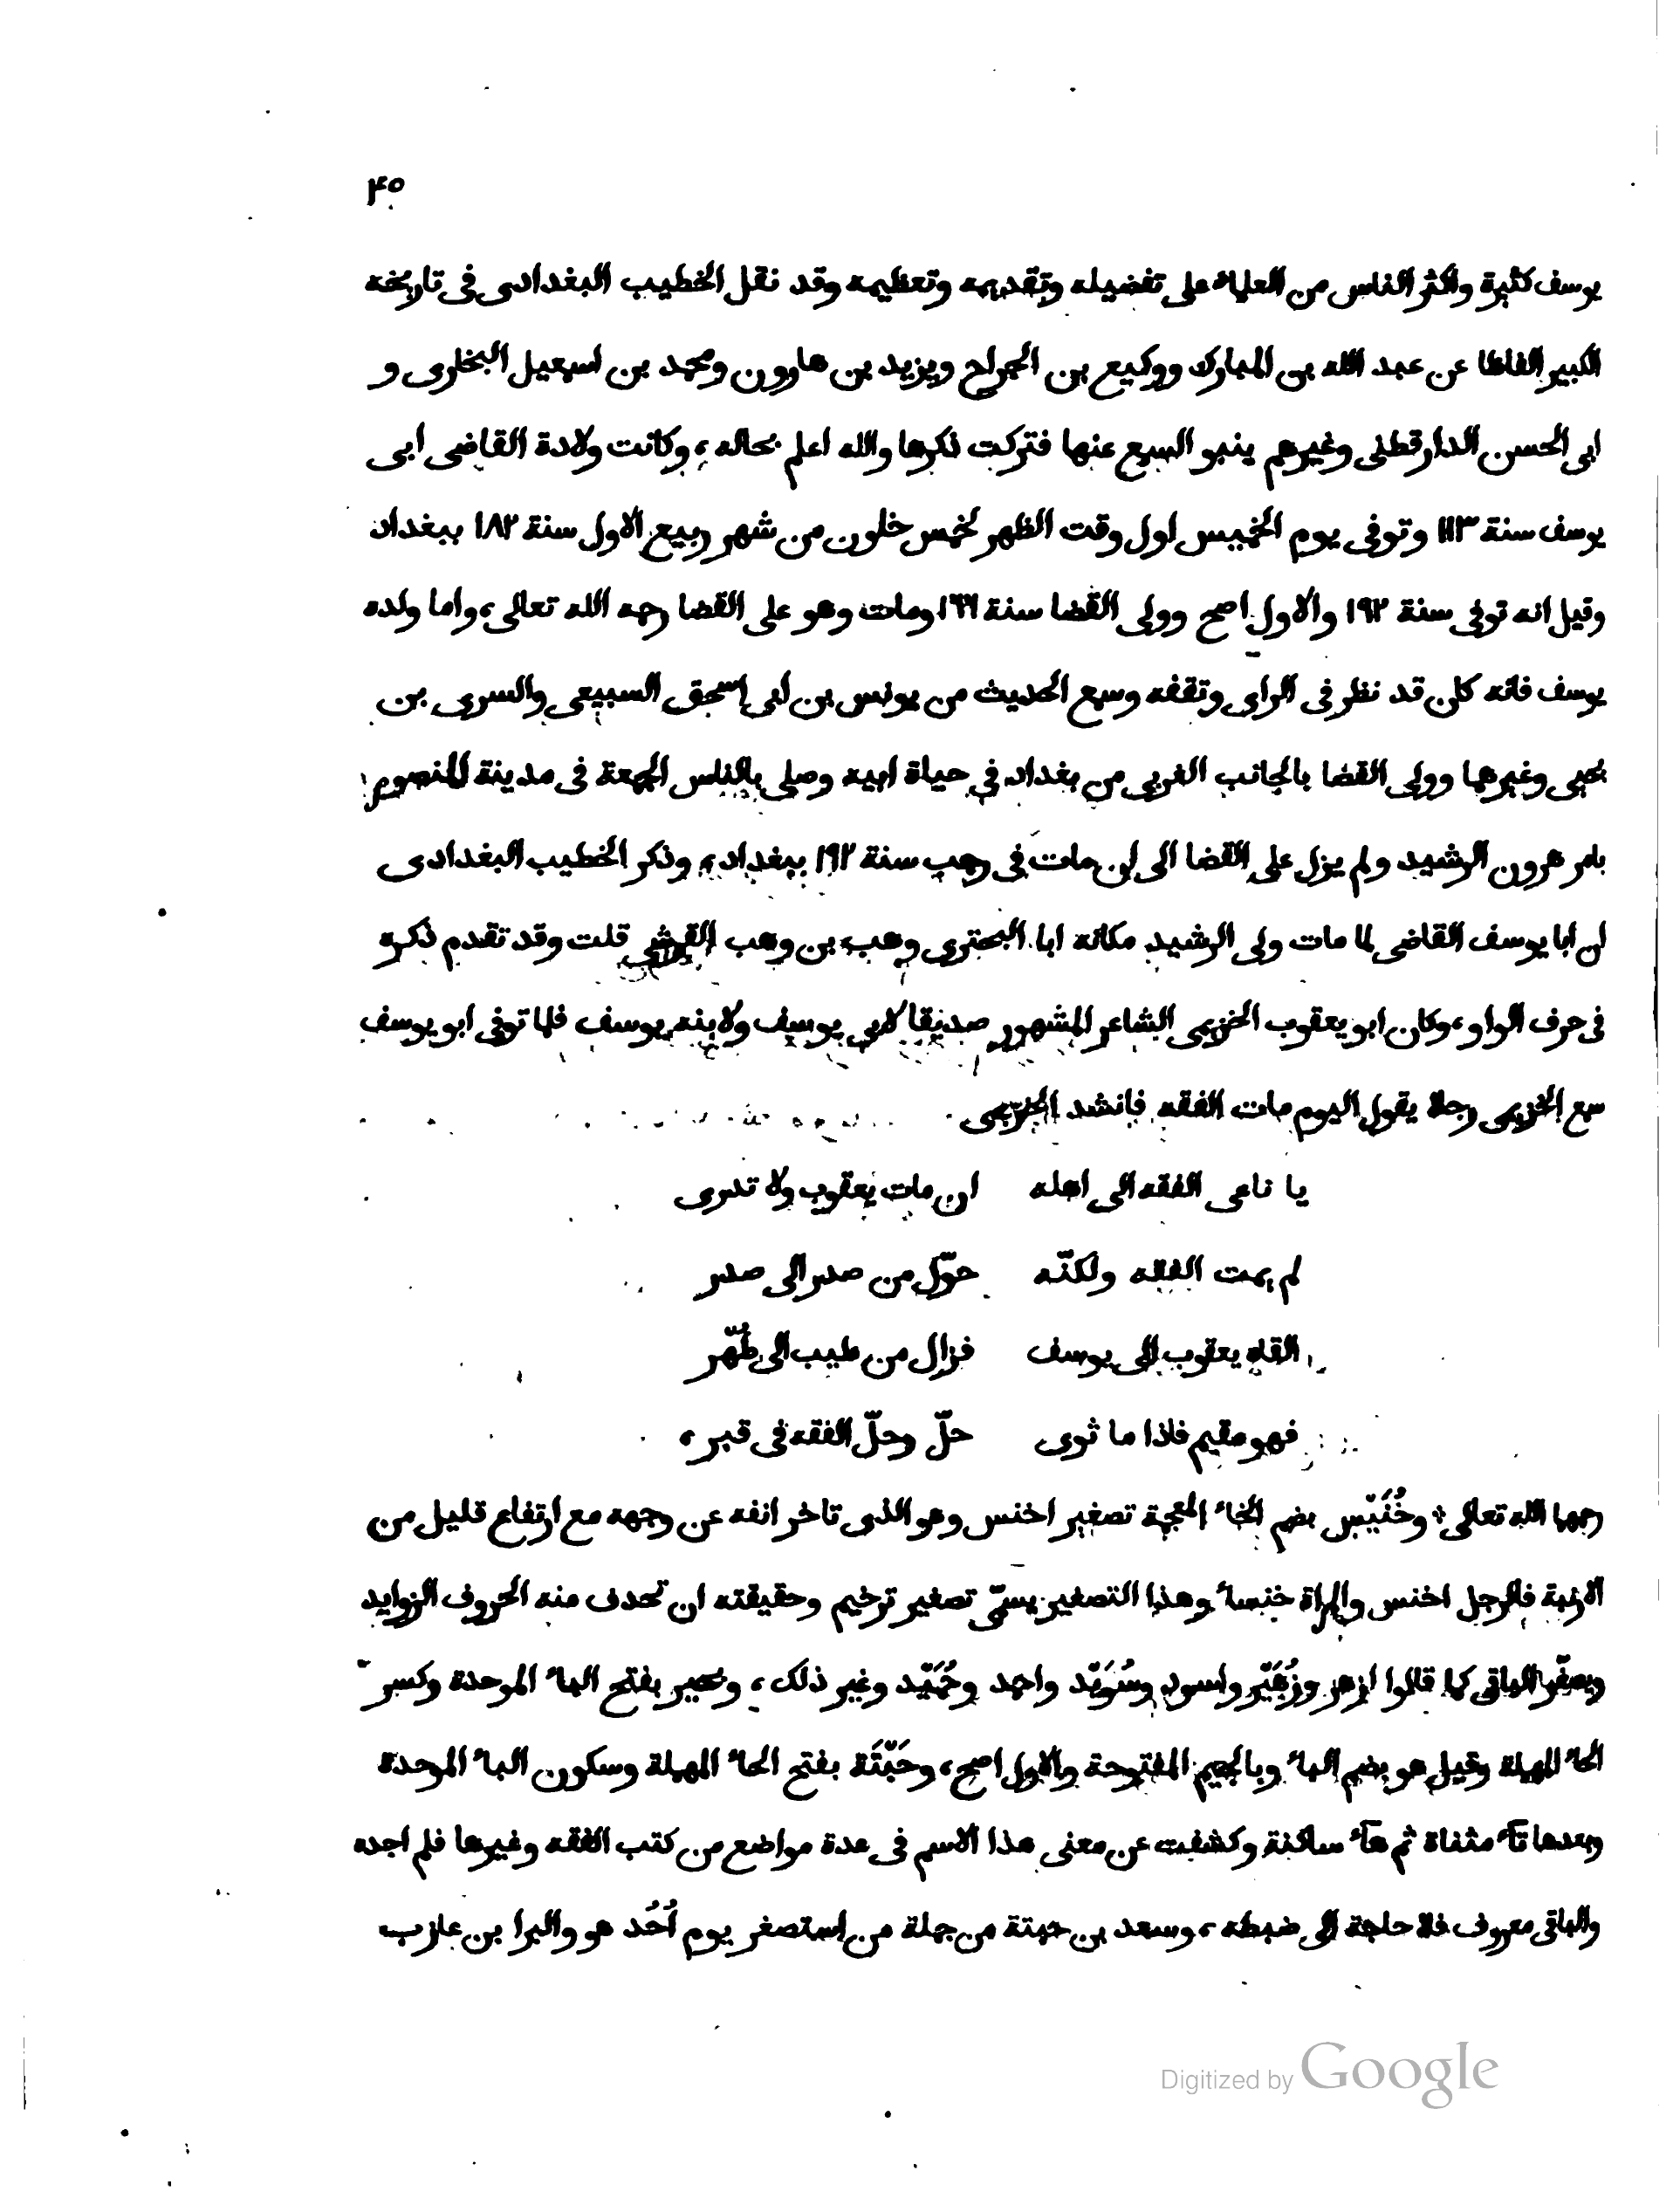 ۴٥
يوسف كثيرة واكثر الناس من العلماء على تفضيله وتقديمه وتعظيمه وقد نقل الخطيب البغدادى فى تاريخه
الكبير الفاظا عن عبد الله بن المبارك ووكيع بن الجراح ويزيد بن هارون ومحمد بن اسمعيل البخارى و
ابى الحسن الدارقطنى وغيرهم ينبو السمع عنها فتركت ذكرها والله اعلم بحاله، وكانت ولادة القاضى ابى
يوسف سنة ١١٣ وتوفى يوم الخميس اول وقت الظهر لخمس خلون من شهر ربيع الاول سنة ١٨٢ ببغداد
وقيل انه توفى سنة ١٩٢ والاول اصح وولى القضا سنة ١٦٦ ومات وهو على القضا رحمه الله تعالى، واما ولده
يوسف فانه كان قد نظر فى الراى وتفقه وسمع الحديث من يونس بن ابى اسحق السبيعى والسرى بن
يحيى وغيرهما وولى القضا بالجانب الغربى من بغداد فى حياة ابيه وصلى بالناس الجمعة فى مدينة المنصور
بامر هرون الرشيد ولم يزل على القضا الى ان مات فى رجب سنة ١٩٢ ببغداد، وذكر الخطيب البغدادى
ان ابا يوسف القاضى لما مات ولى الرشيد مكانه ابا البخترى وهب بن وهب القرشى قلت وقد تقدم ذكره
فى حرف الواو، وكان ابو يعقوب الخزيمى الشاعر المشهور صديقا لابى يوسف ولابنه يوسف فلما توفى ابو يوسف
سمع الخزيمى رجلا يقول اليوم مات الفقه فانشد الخزيمى
يا ناعى الفقه الى اهله ان مات يعقوب ولا تدرى
لم يمت الفقه ولكنّه حوّل من صدر الى صدر
القاه يعقوب الى يوسف فزال من طيب الى طُهّر
فهو مقيم فاذا ما ثوى حلّ وحلّ الفقه فى قبر،
رحمهما الله تعالى * وخُنَيْس بضم الخاء المعجمة تصغير اخنس وهو الذى تاخر انفه عن وجهه مع ارتفاع قليل من
الارنبة فالرجل اخنس والمراة خنساء وهذا التصغير يسمّى تصغير ترخيم وحقيقته ان تحذف منه الحروف الزوايد
ويصغّر الباقى كما قالوا ازهر وزُهَيْر واسود وسُوَيْد واحمد وحُمَيْد وغير ذلك، وبحير بفتح الباء الموحدة وكسر
الحاء المهملة وقيل هو بضم الباء وبالجيم المفتوحة والاول اصح، وحَبْتَة بفتح الحاء المهملة وسكون الباء الموحدة
وبعدها تآء مثناة ثم هآء ساكنة وكشفت عن معنى هذا الاسم فى عدة مواضع من كتب الفقه وغيرها فلم اجده
والباقى معروف فلا حاجة الى ضبطه، وسعد بن حبتة من جملة من استصغر يوم اُحُد هو والبرا بن عازب
Digitized by Google